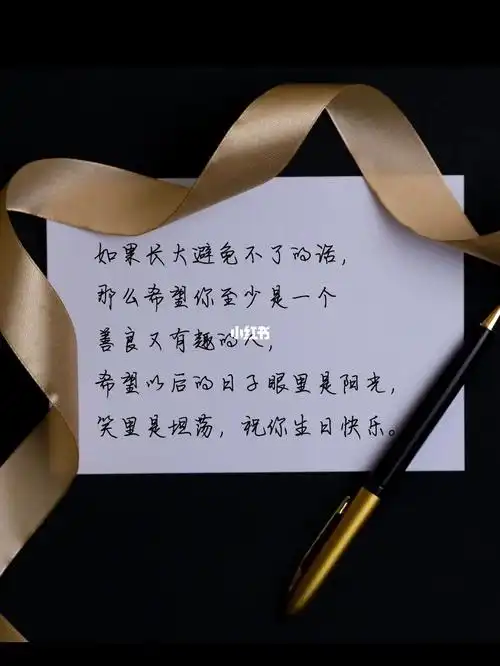 如果长大避免不了的话，
那么希望你至少是一个
善良又有趣的人，
希望以后的日子眼里是阳光，
笑里是坦荡，祝你生日快乐。
小红书